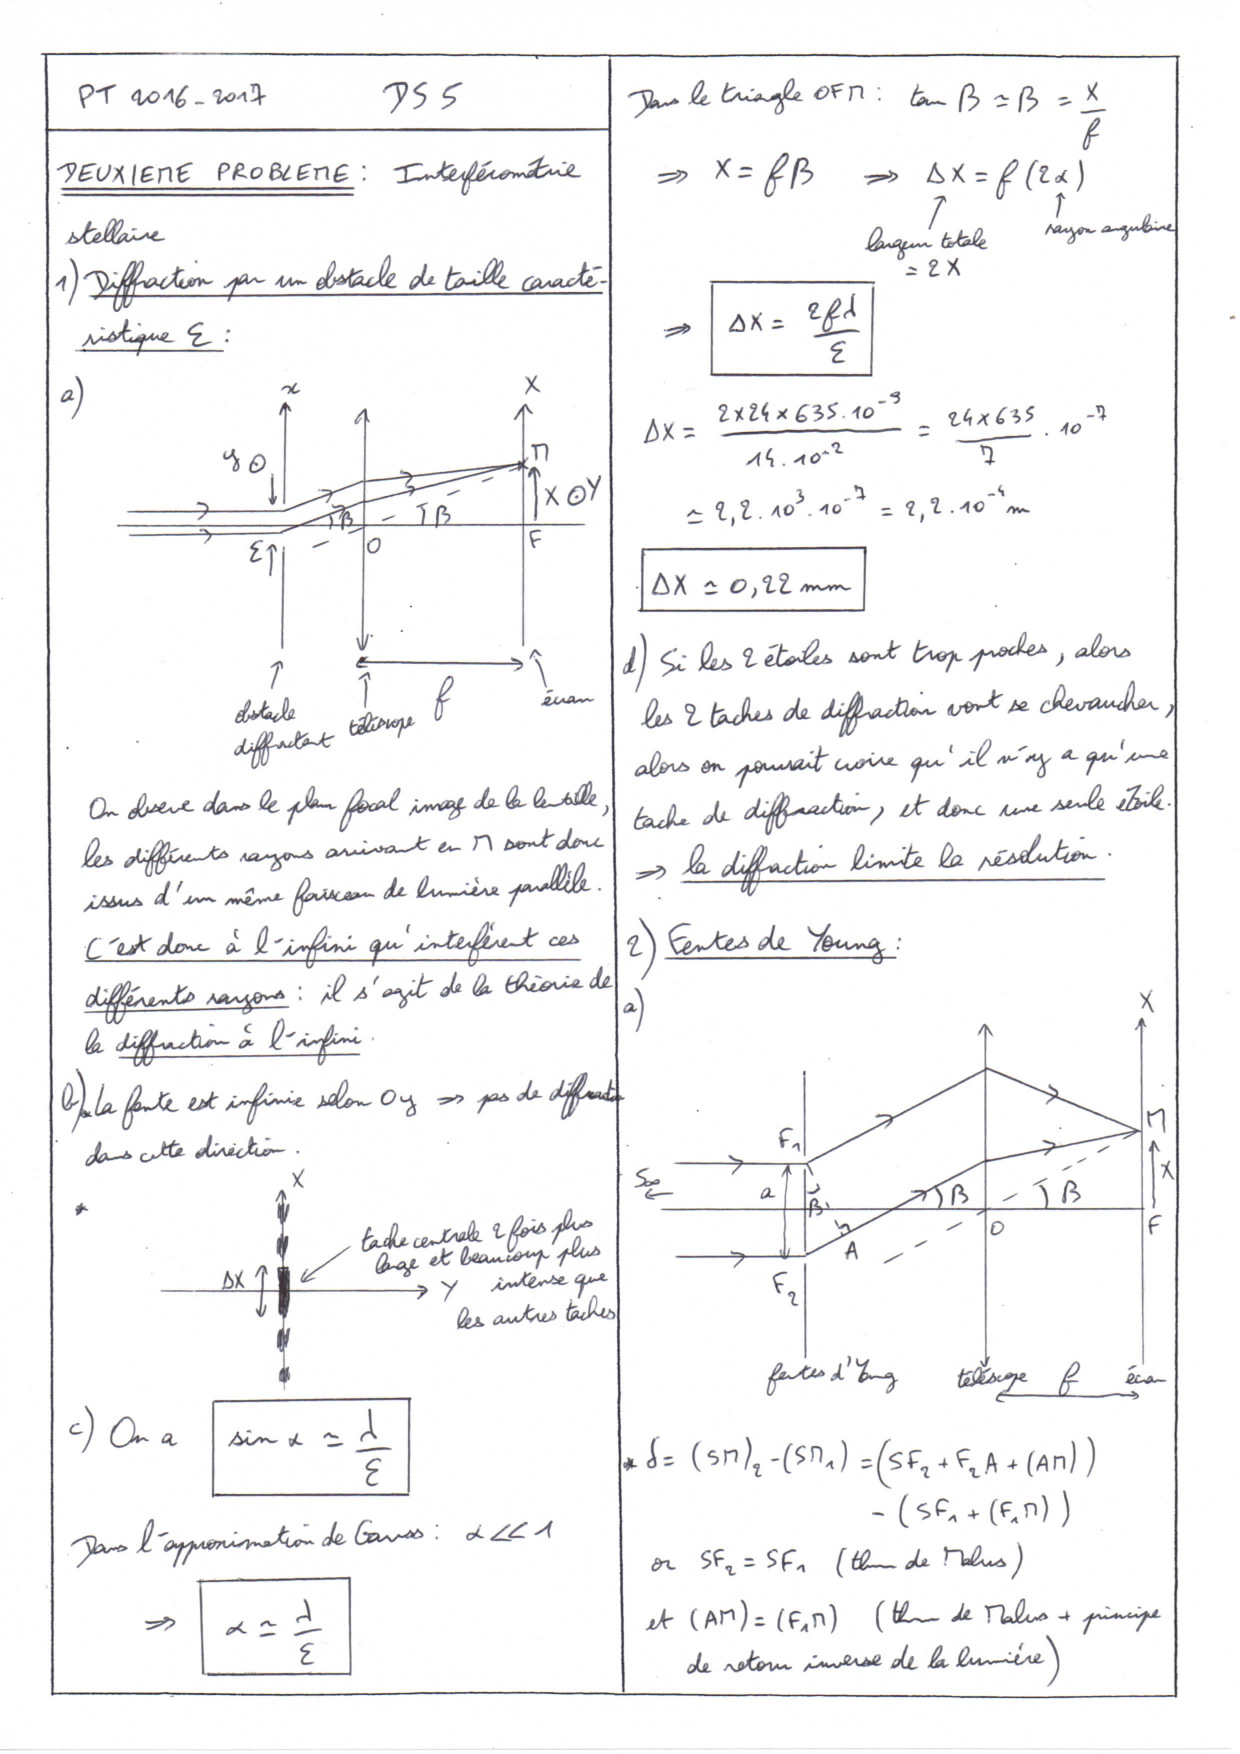 PT 2016-2017 DS 5
DEUXIEME PROBLEME : Interférométrie
stellaire
1) Diffraction par un obstacle de taille caracté-
ristique ε :
a)
x
X
y ⊙
M
X ⊙ Y
β
β
ε
O
F
f
obstacle
diffractant
télescope
écran
On observe dans le plan focal image de la lentille,
les différents rayons arrivant en M sont donc
issus d'un même faisceau de lumière parallèle.
C'est donc à l'infini qu'interfèrent ces
différents rayons : il s'agit de la théorie de
la diffraction à l'infini.
b) * La fente est infinie selon Oy ⇒ pas de diffraction
dans cette direction.
*
X
tache centrale 2 fois plus
large et beaucoup plus
intense que
les autres taches
ΔX
Y
c) On a sin α ≃ λ/ε
Dans l'approximation de Gauss : α << 1
⇒ α ≃ λ/ε
Dans le triangle OFM : tan β ≃ β = X/f
⇒ X = fβ ⇒ ΔX = f(2α)
largeur totale
= 2X
rayon angulaire
⇒ ΔX = 2fλ/ε
ΔX = 2×24×635.10^-9 / 14.10^-2 = 24×635/7 . 10^-7
≃ 2,2.10^3.10^-7 = 2,2.10^-4 m
ΔX ≃ 0,22 mm
d) Si les 2 étoiles sont trop proches, alors
les 2 taches de diffraction vont se chevaucher,
alors on pourrait croire qu'il n'y a qu'une
tache de diffraction, et donc une seule étoile.
⇒ la diffraction limite la résolution.
2) Fentes de Young :
a)
X
F1
M
S∞
a
β
β
β
X
A
O
F
F2
fentes d'Young
télescope
f
écran
* δ = (SM)2 - (SM1) = (SF2 + F2A + (AM))
- (SF1 + (F1M))
or SF2 = SF1 (thm de Malus)
et (AM) = (F1M) (thm de Malus + principe
de retour inverse de la lumière)